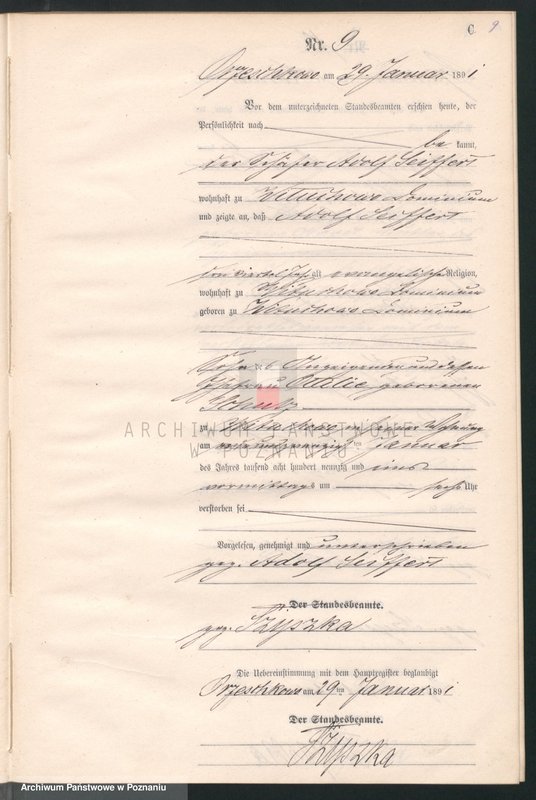 C 9
Nr. 9
Orzeschkowo am 29. Januar 1891
Vor dem unterzeichneten Standesbeamten erschien heute, der
Persönlichkeit nach
be kannt,
der Schäfer Adolf Seiffert
wohnhaft zu Wituchowo Dominium
und zeigte an, daß Adolf Seiffert
alt evangelischer Religion,
wohnhaft zu Wituchowo Dominium
geboren zu Wituchowo Dominium
Sohn des Anzeigenden und dessen
Ehefrau Ottilie geborenen
zu Wituchowo in seiner Wohnung
am ten Januar
des Jahres tausend acht hundert neunzig und eins
vormittags um sechs Uhr
verstorben sei
Vorgelesen, genehmigt und unterschrieben
gez. Adolf Seiffert
Der Standesbeamte.
gez. Szyszka
Die Uebereinstimmung mit dem Hauptregister beglaubigt
Orzeschkowo am 29 ten Januar 1891
Der Standesbeamte.
Szyszka
ARCHIWUM PAŃSTWOWE
W POZNANIU
Archiwum Państwowe w Poznaniu